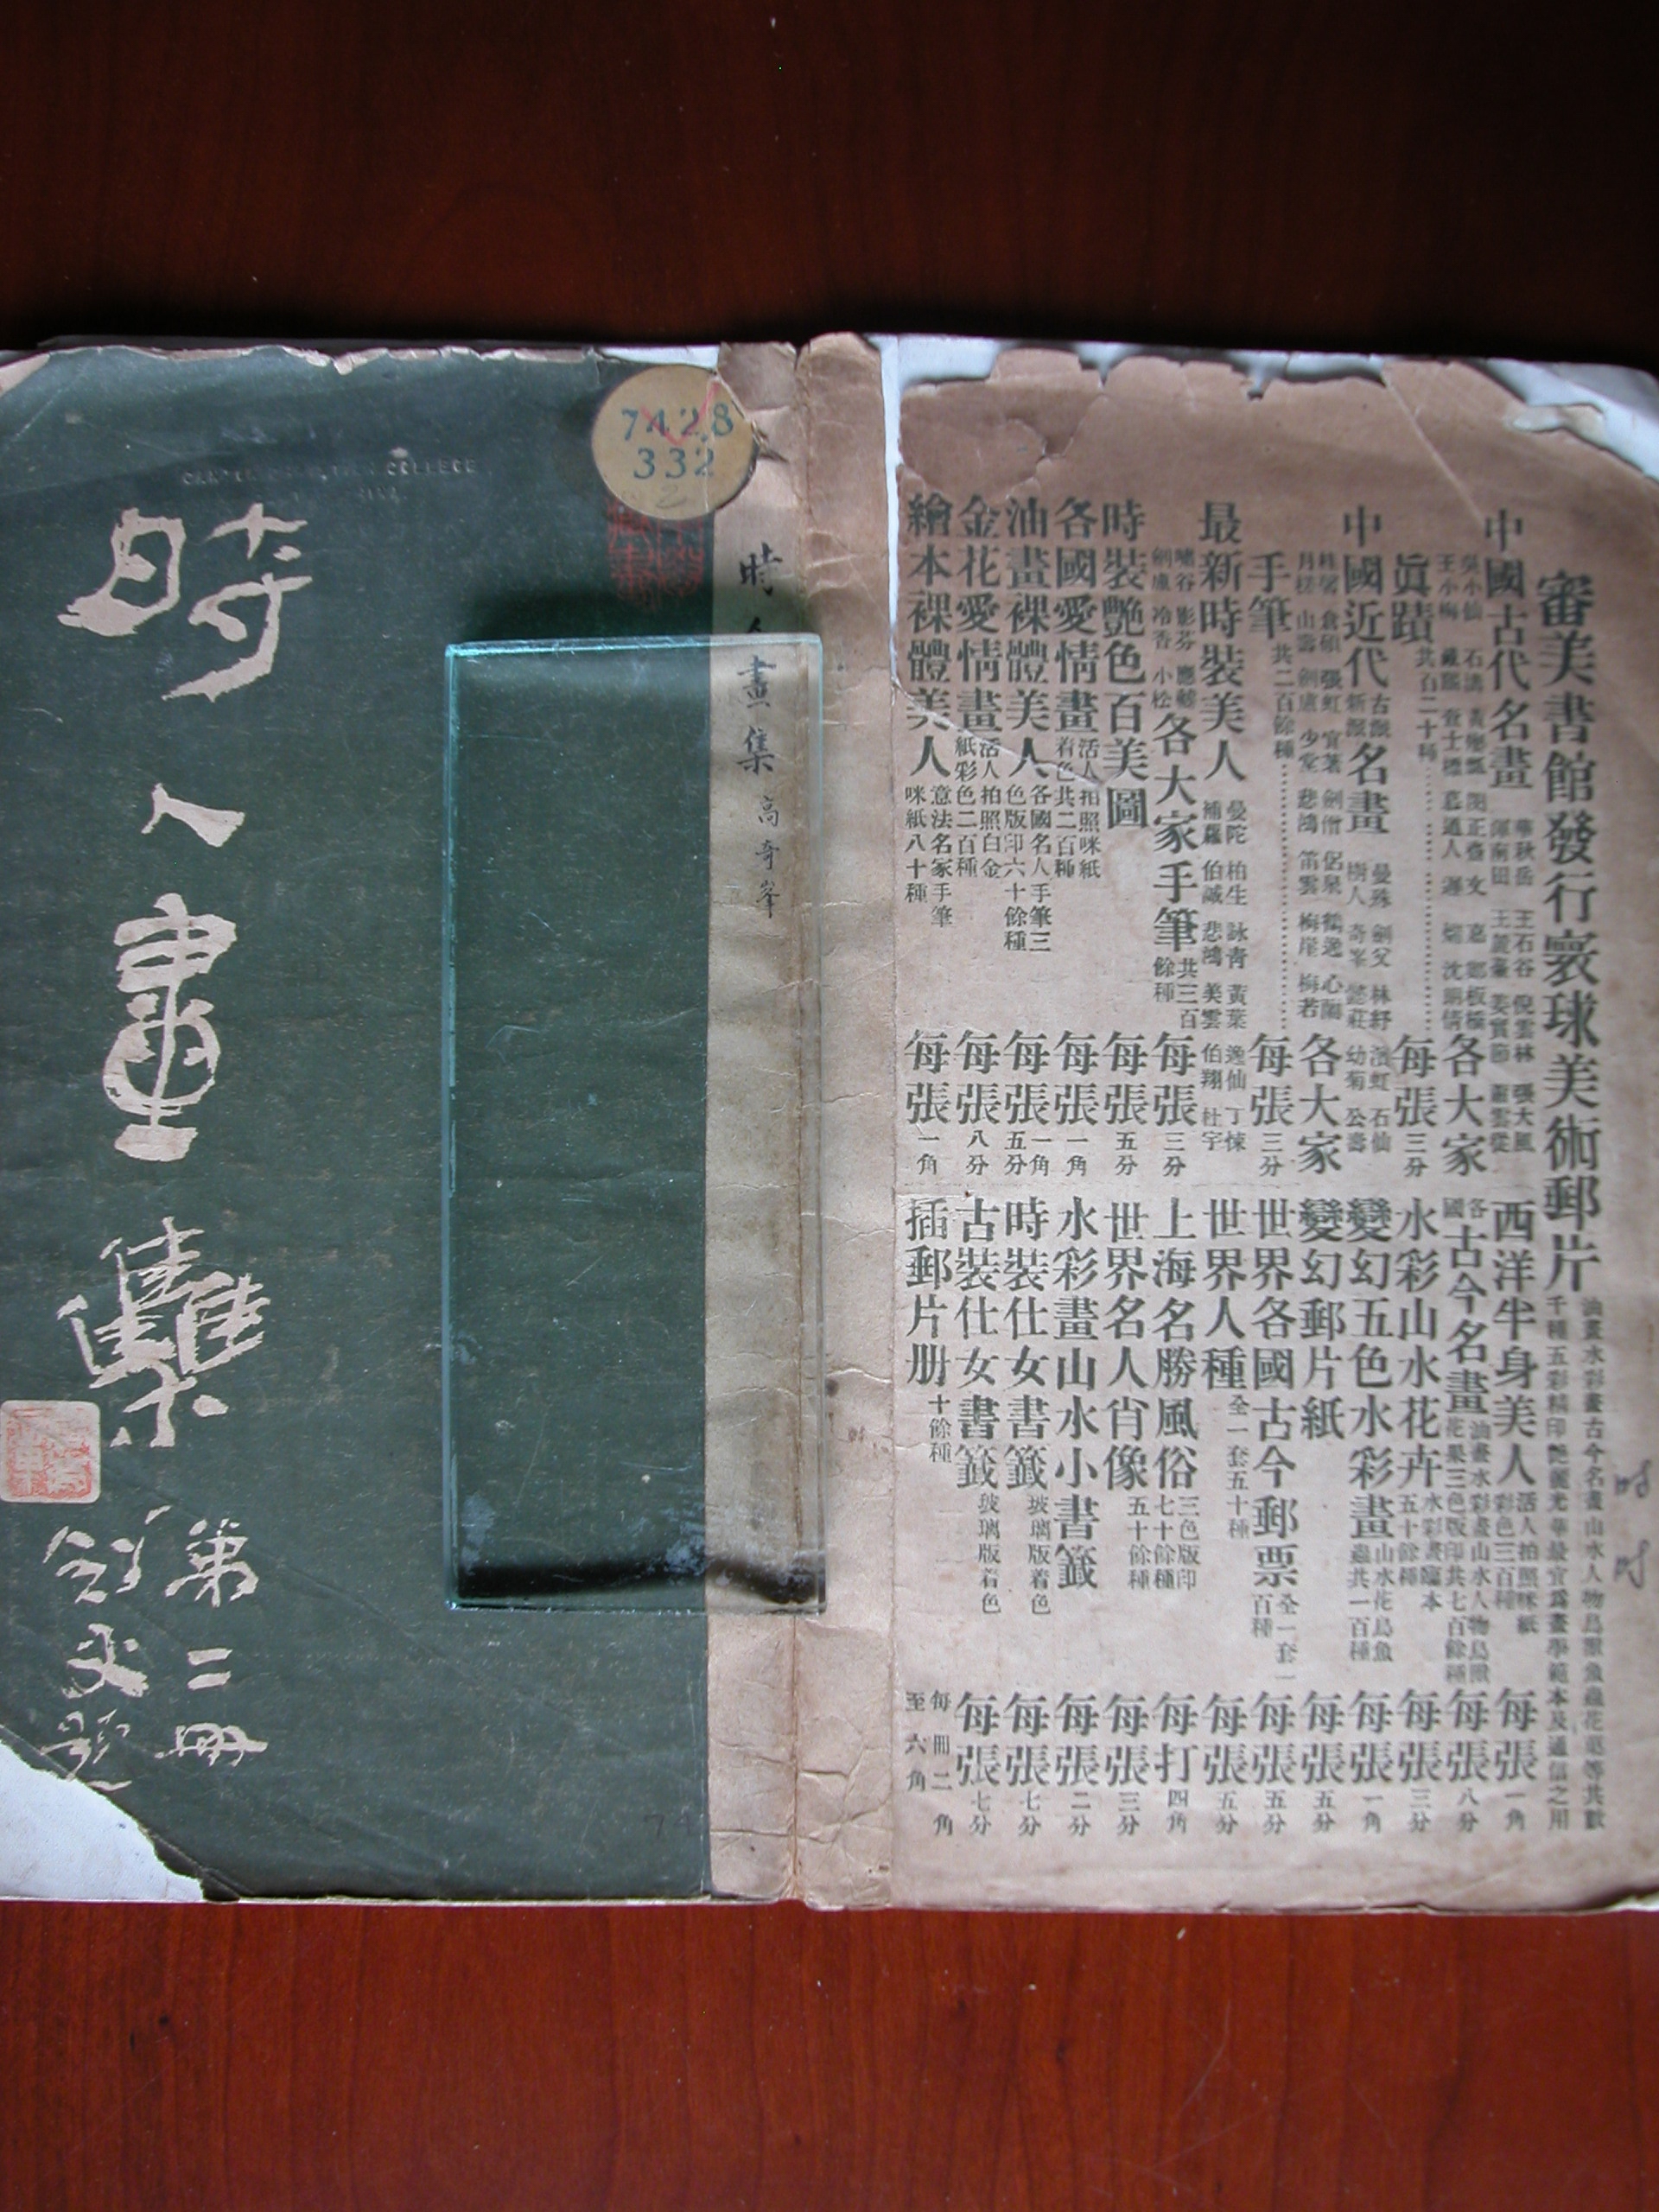 時人畫集
第二冊
劍父題
7428
332
2
COLLEGE
時人畫集 高奇峯
審美書館發行寰球美術郵片
油畫水彩畫古今名畫山水人物鳥獸魚蟲花菓等共數
千種五彩精印艷麗光華最宜爲畫學範本及通信之用
中國古代名畫
華秋岳 王石谷 倪雲林 張大風
惲南田 王麓臺 姜實節
各大家
吳小仙 石濤
王小梅 戴熙 查士標
眞蹟
共百二十種
每張三分
中國近代
古派
新派
名畫
曼殊 劍父 林紓 濱虹 石仙
樹人 奇峯 幼菊 公壽
各大家
倉碩 張虹 劍僧 鶴逸
月槎 山壽 劍廬 少堂 悲鴻 笛雲 梅崖
手筆
共二百餘種
每張三分
最新時裝美人
曼陀 柏生 詠青 黃葉 逸仙 丁悚
補蘿 伯誠 悲鴻 美雲 伯翔 杜宇
嘯谷 影芬
劍廬 冷香 小松
各大家手筆
共三百
餘種
每張三分
時裝艷色百美圖
每張五分
各國愛情畫
活人拍照咪紙
着色共二百種
每張一角
油畫裸體美人
各國名人手筆三
色版印六十餘種
每張
一角
五分
金花愛情畫
活人拍照白金
紙彩色二百種
每張八分
繪本裸體美人
意法名家手筆
咪紙八十種
每張一角
西洋半身美人
活人拍照咪紙
彩色三百種
每張一角
各國
古今名畫
油畫水彩畫山水人物鳥獸
花果三色版印共七百餘種
每張八分
水彩山水花卉
水彩畫臨本
五十餘種
每張三分
變幻五色水彩畫
山水花鳥魚
蟲共一百種
每張一角
變幻郵片紙
每張五分
世界各國古今郵票
全一套一
百種
每張五分
世界人種
全一套五十種
每張五分
上海名勝風俗
三色版印
七十餘種
每打四角
世界名人肖像
五十餘種
每張三分
水彩畫山水小書籤
每張二分
時裝仕女書籤
玻璃版着色
每張七分
古裝仕女書籤
玻璃版着色
每張七分
插郵片册
十餘種
每冊二角
至六角